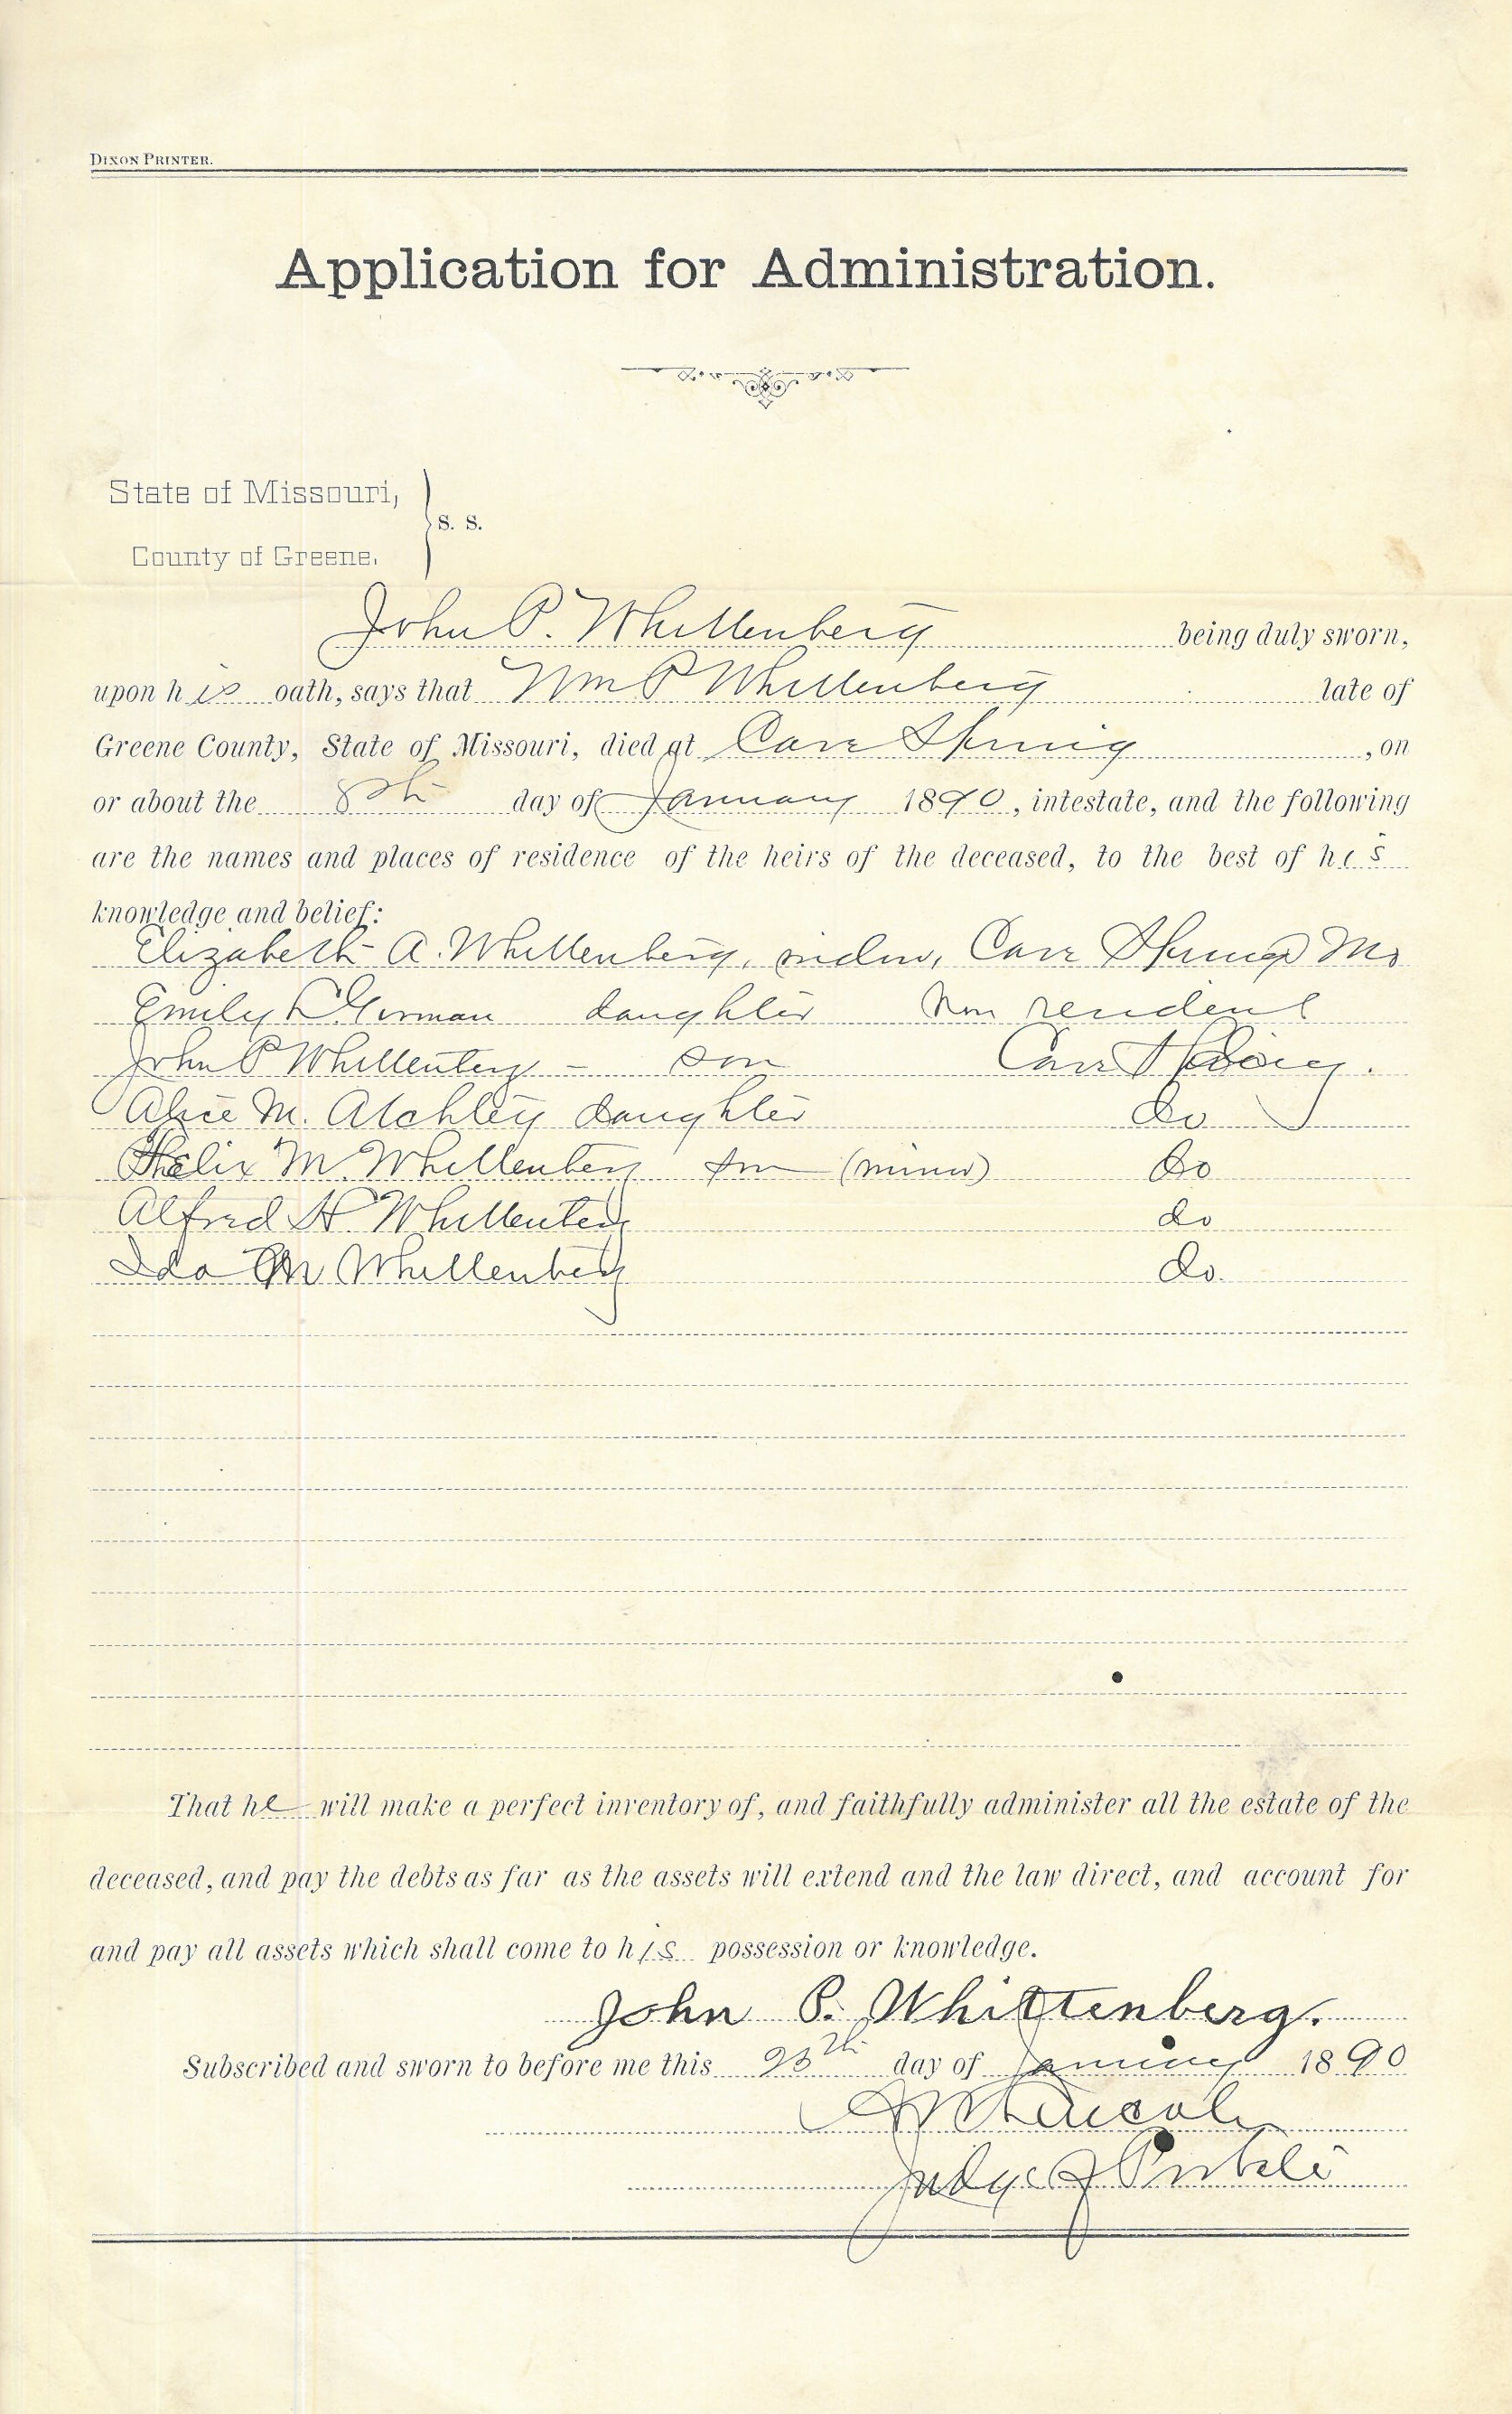 DIXON PRINTER.
Application for Administration.
State of Missouri,
S. S.
County of Greene.
John P. Whittenberg being duly sworn,
upon his oath, says that Wm P Whittenberg late of
Greene County, State of Missouri, died at Cave Spring, on
or about the 8th day of January 1890, intestate, and the following
are the names and places of residence of the heirs of the deceased, to the best of his
knowledge and belief:
Elizabeth A. Whittenberg, widow, Cave Spring Mo
Emily daughter Non resident
John P Whittenberg - son Cave Spring.
Alice M. Atchley daughter do
Felix M. Whittenberg son (minor) Do
Alfred H. Whittenberg do
Ida M Whittenberg Do.
That he will make a perfect inventory of, and faithfully administer all the estate of the
deceased, and pay the debts as far as the assets will extend and the law direct, and account for
and pay all assets which shall come to his possession or knowledge.
John P. Whittenberg.
Subscribed and sworn to before me this day of January 1890
Lincoln
Judge of Probate